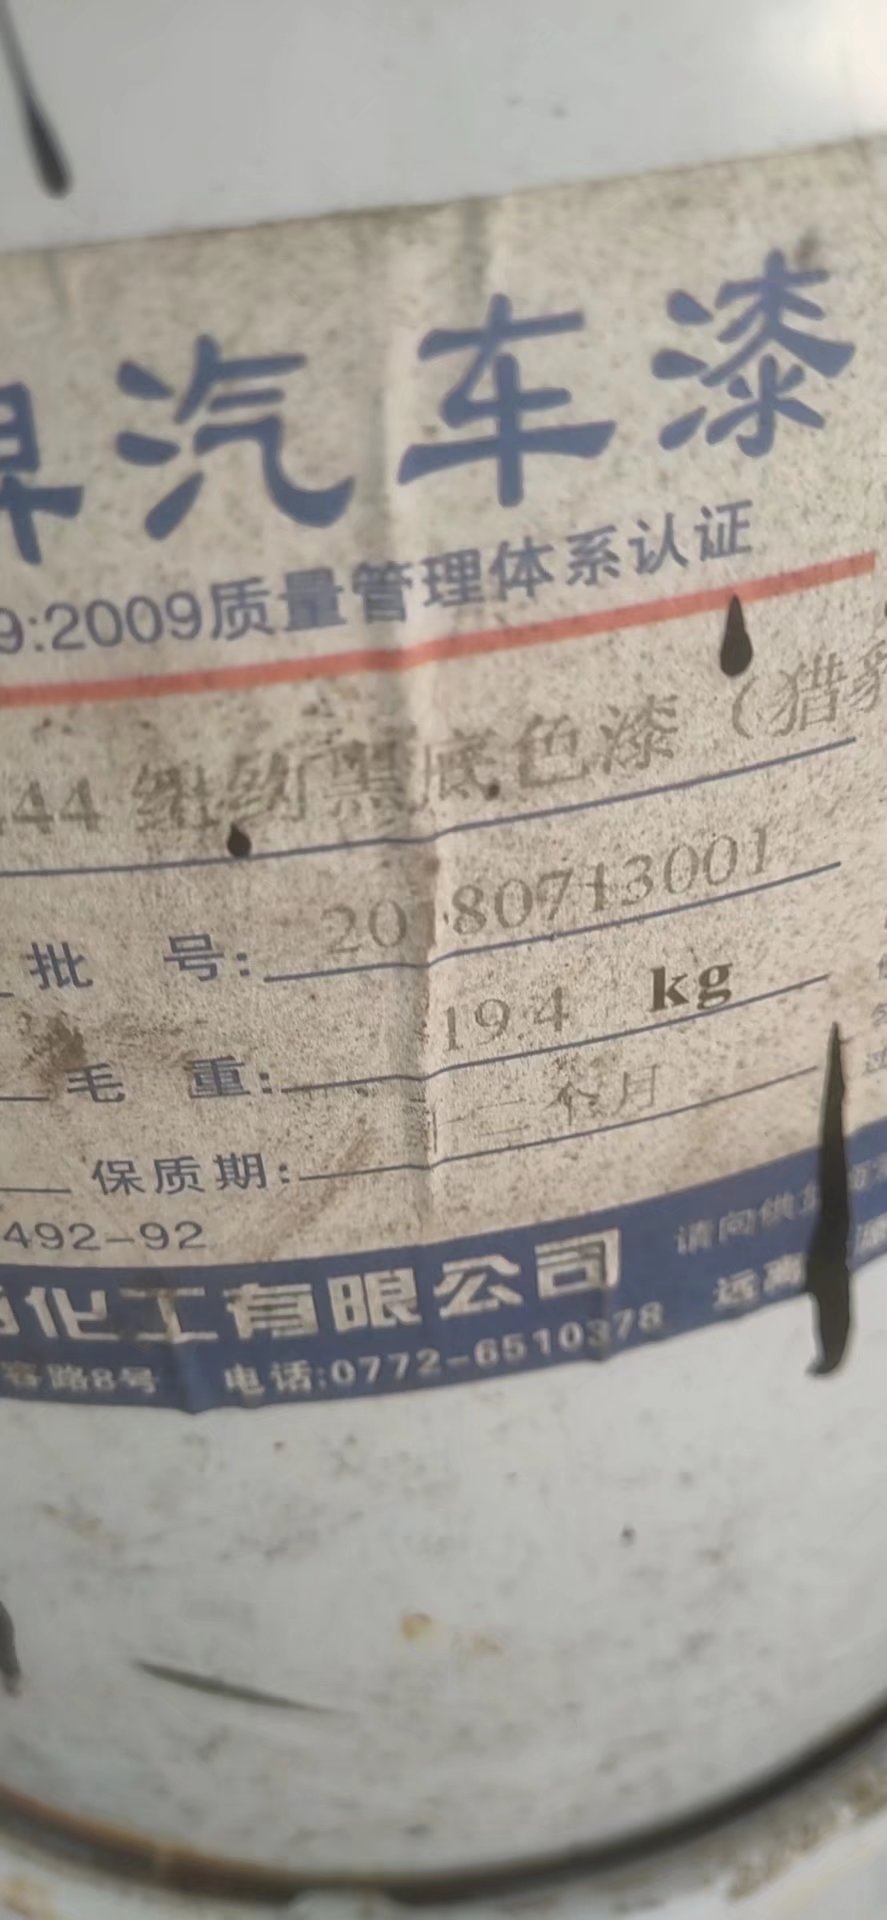 牌汽车漆
9:2009质量管理体系认证
444 纽约黑底色漆（猎豹
批 号: 20180713001
毛 重: 19.4 kg
保质期: 十二个月
492-92
化工有限公司 请向供
容路8号 电话:0772-6510378 远离